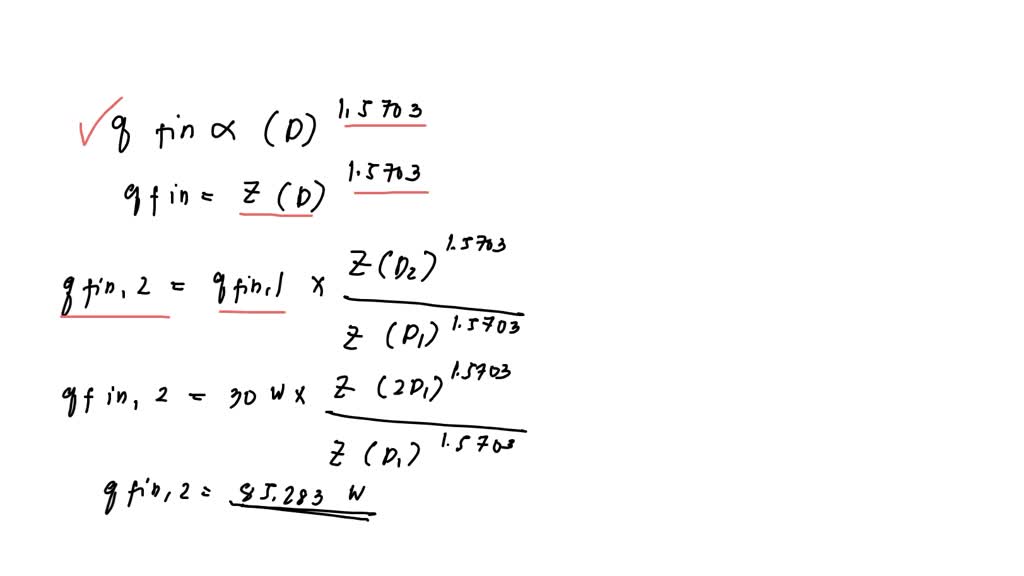 q fin ∝ (D)^1.5703
q fin = Z (D)^1.5703
q fin, 2 = q fin, 1 × Z (D₂)^1.5703 / Z (D₁)^1.5703
q fin, 2 = 30 W × Z (2D₁)^1.5703 / Z (D₁)^1.5703
q fin, 2 = 85.283 W